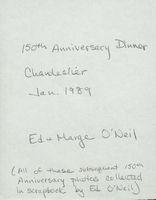 150th Anniversary Dinner
Chandelier
Jan. 1989
Ed + Marge O'Neil
(All of these subsequent 150th
Anniversary photos collected
in scrapbook by Ed O'Neil)